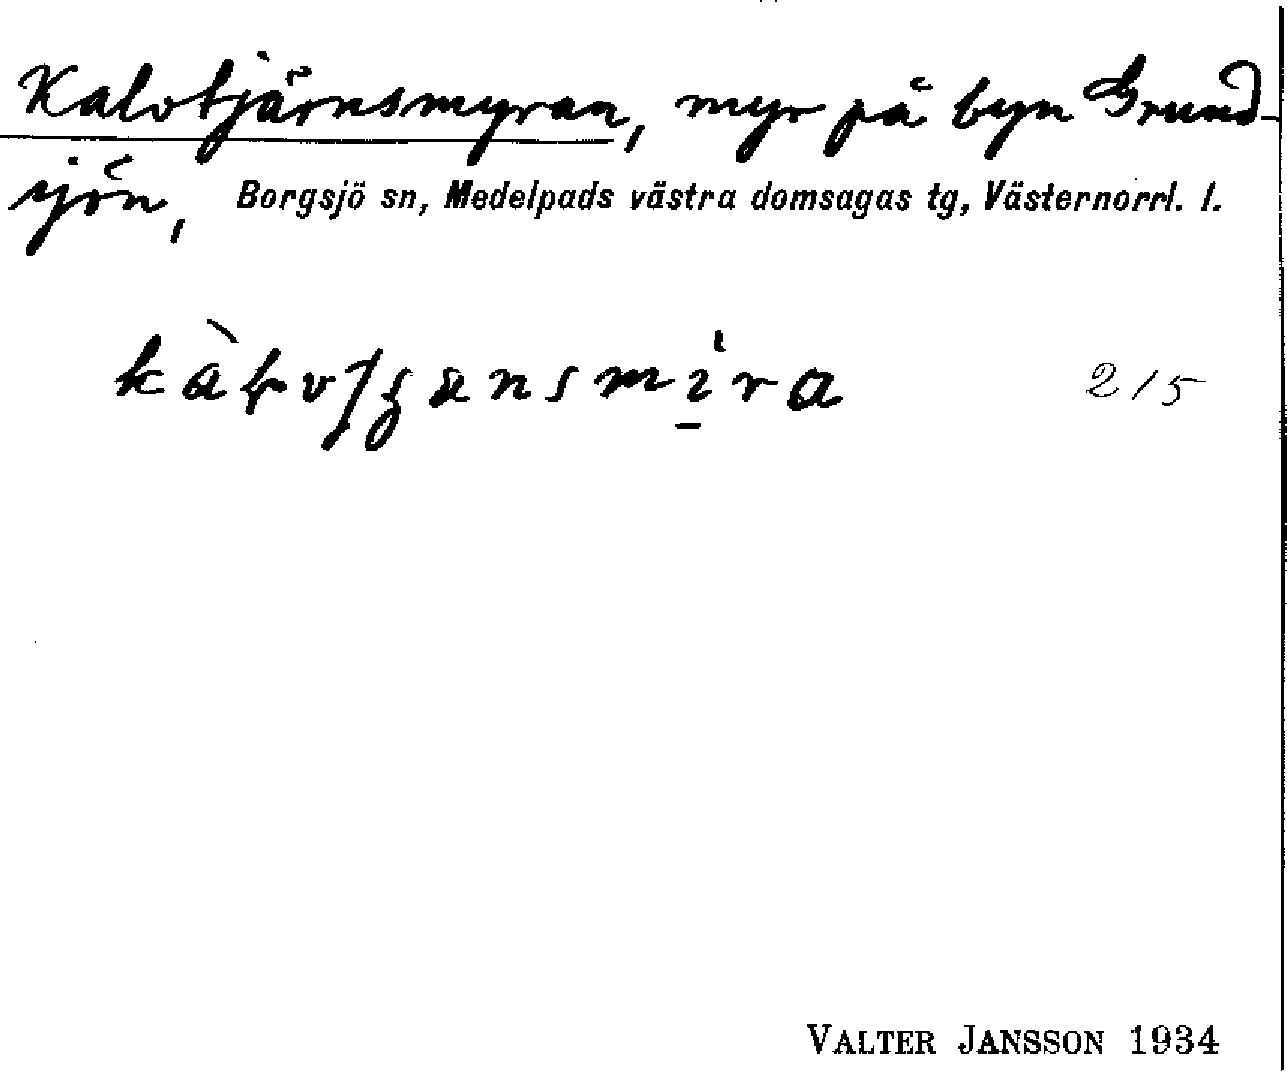 Kalvtjärnsmyran, myr på byn Grund-
sjön, Borgsjö sn, Medelpads västra domsagas tg, Västernorrl. l.
2/5
VALTER JANSSON 1934